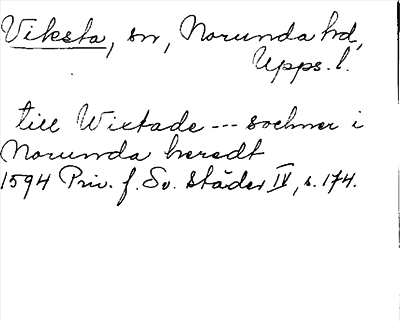 Viksta, sn, Norunda hd,
Upps. l.
till Wixtade --- sochner i
Norunda heredt
1594 Priv. f. Sv. Städer IV, s. 174.